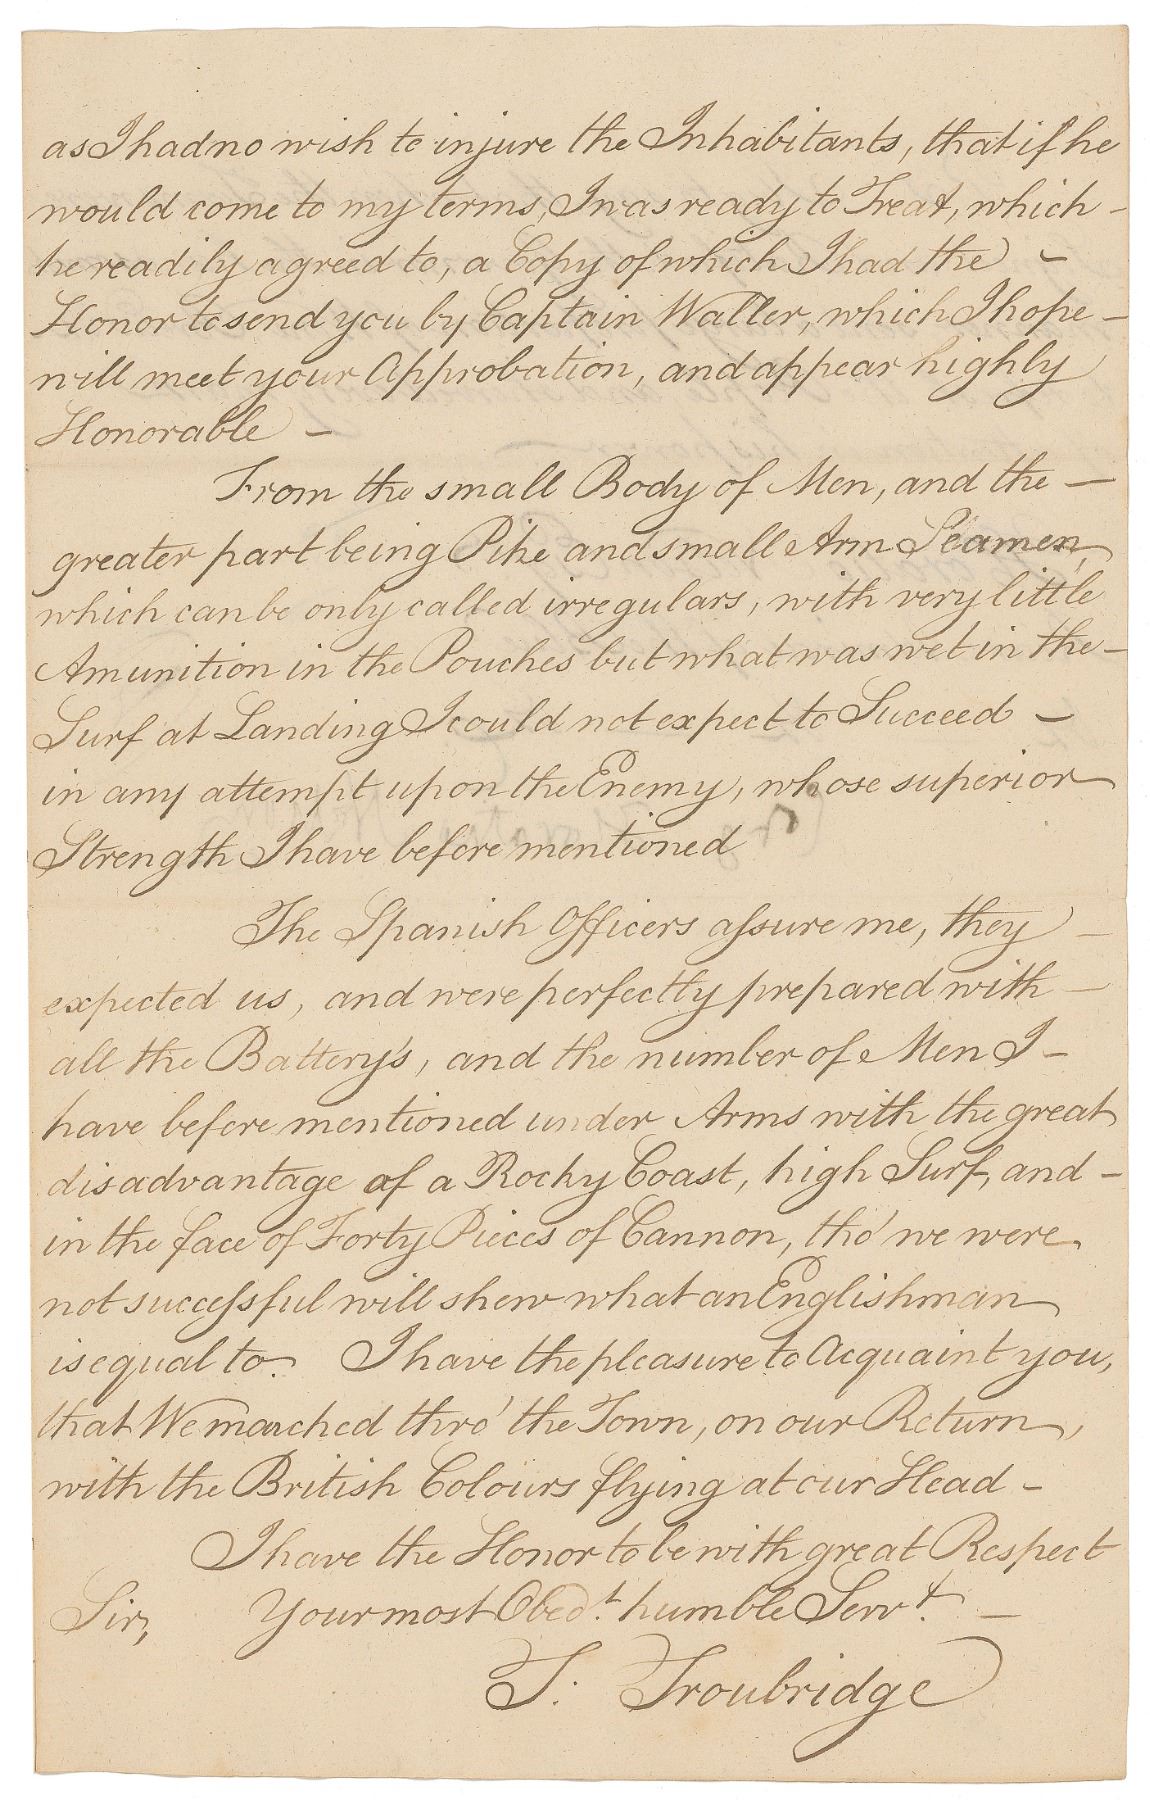 as I had no wish to injure the Inhabitants, that if he
would come to my terms, I was ready to Treat, which -
he readily agreed to, a Copy of which I had the -
Honor to send you by Captain Waller, which I hope -
will meet your Approbation, and appear highly
Honorable -
From the small Body of Men, and the -
greater part being Pike and small Arm Seamen,
which can be only called irregulars, with very little
Amunition in the Pouches but what was wet in the -
Surf at Landing I could not expect to Succeed -
in any attempt upon the Enemy, whose superior
Strength I have before mentioned
The Spanish Officers aſsure me, they -
expected us, and were perfectly prepared with -
all the Battery's, and the number of Men I -
have before mentioned under Arms with the great
disadvantage of a Rocky Coast, high Surf, and -
in the face of Forty Pieces of Cannon, tho' we were
not succeſsful will shew what an Englishman
is equal to. I have the pleasure to Acquaint you,
that We marched thro' the Town, on our Return,
with the British Colours flying at our Head -
I have the Honor to be with great Respect
Sir, Your most Obed.t humble Serv.t -
T. Troubridge